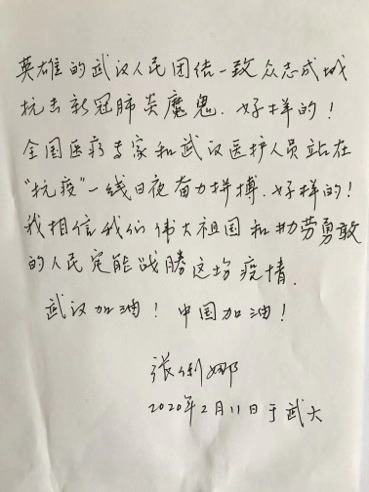 英雄的武汉人民团结一致众志成城
抗击新冠肺炎魔鬼.好样的!
全国医疗专家和武汉医护人员站在
"抗疫"一线日夜奋力拼搏.好样的!
我相信我们伟大祖国和勤劳勇敢
的人民定能战勝这场疫情.
武汉加油!中国加油!
张俐娜
2020年2月11日于武大